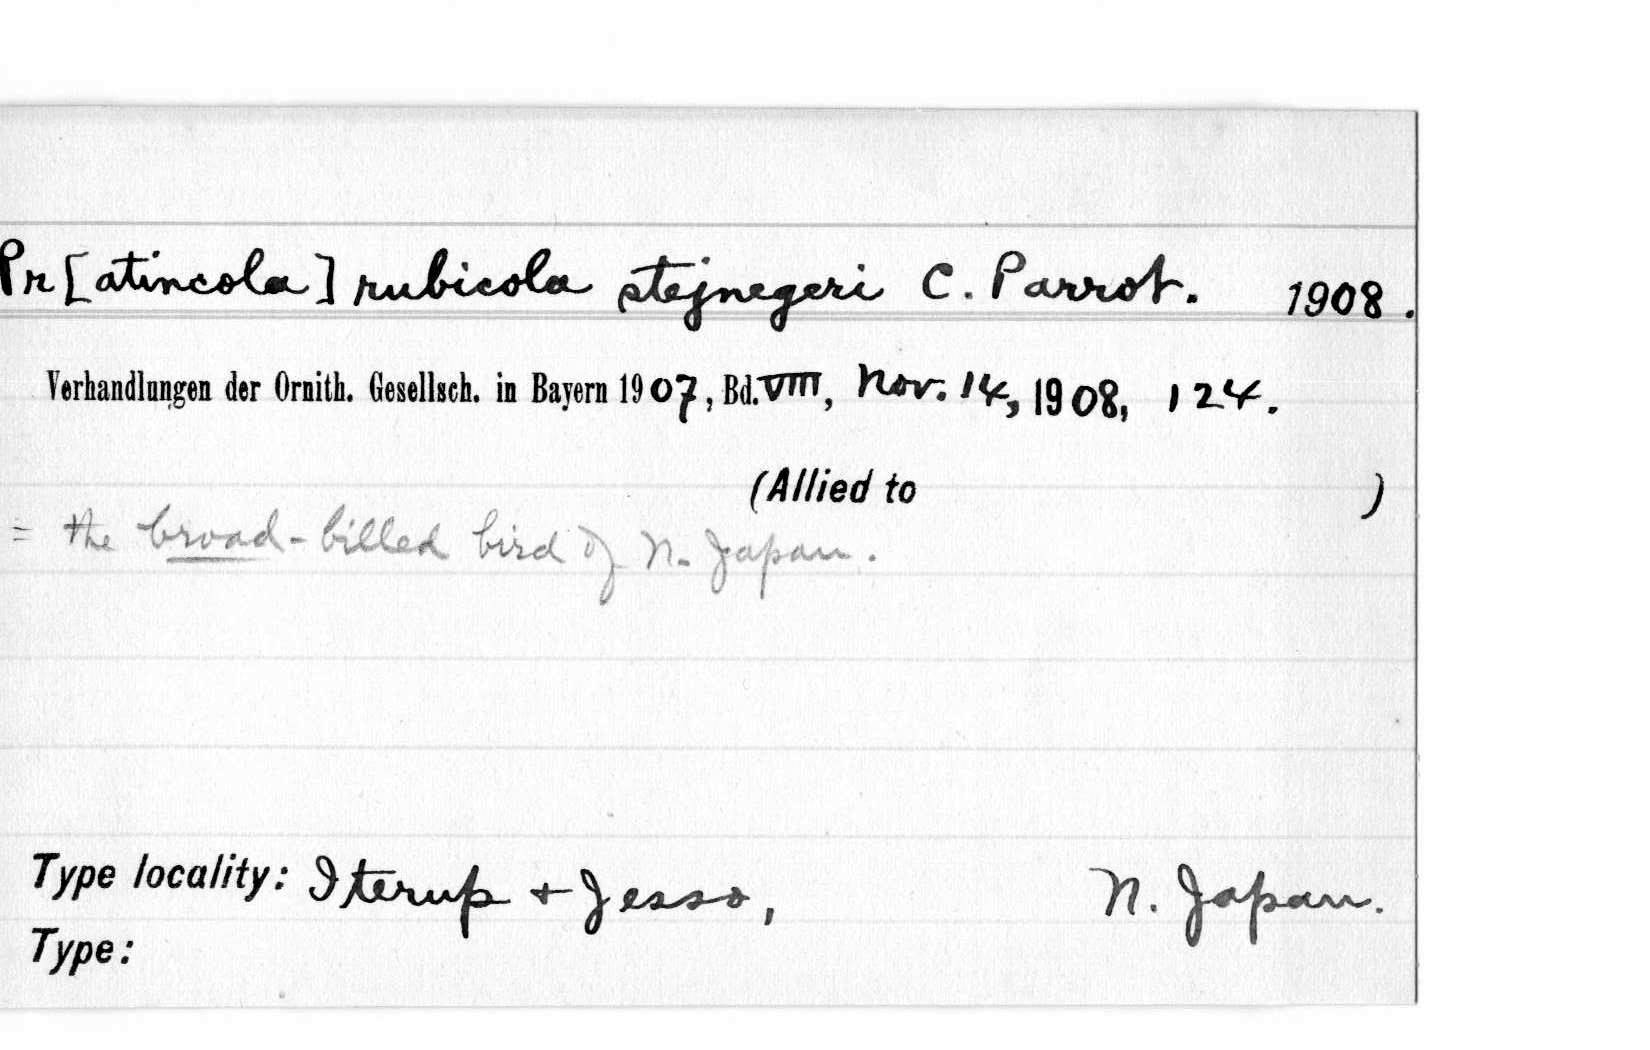 Pr[atincola] rubicola stejnegeri C. Parrot. 1908.
Verhandlungen der Ornith. Gesellsch. in Bayern 1907, Bd. VIII, Nov. 14, 1908, 124.
(Allied to )
= the broad-billed bird of N. Japan.
Type locality: Iterup + Jesso, N. Japan.
Type: